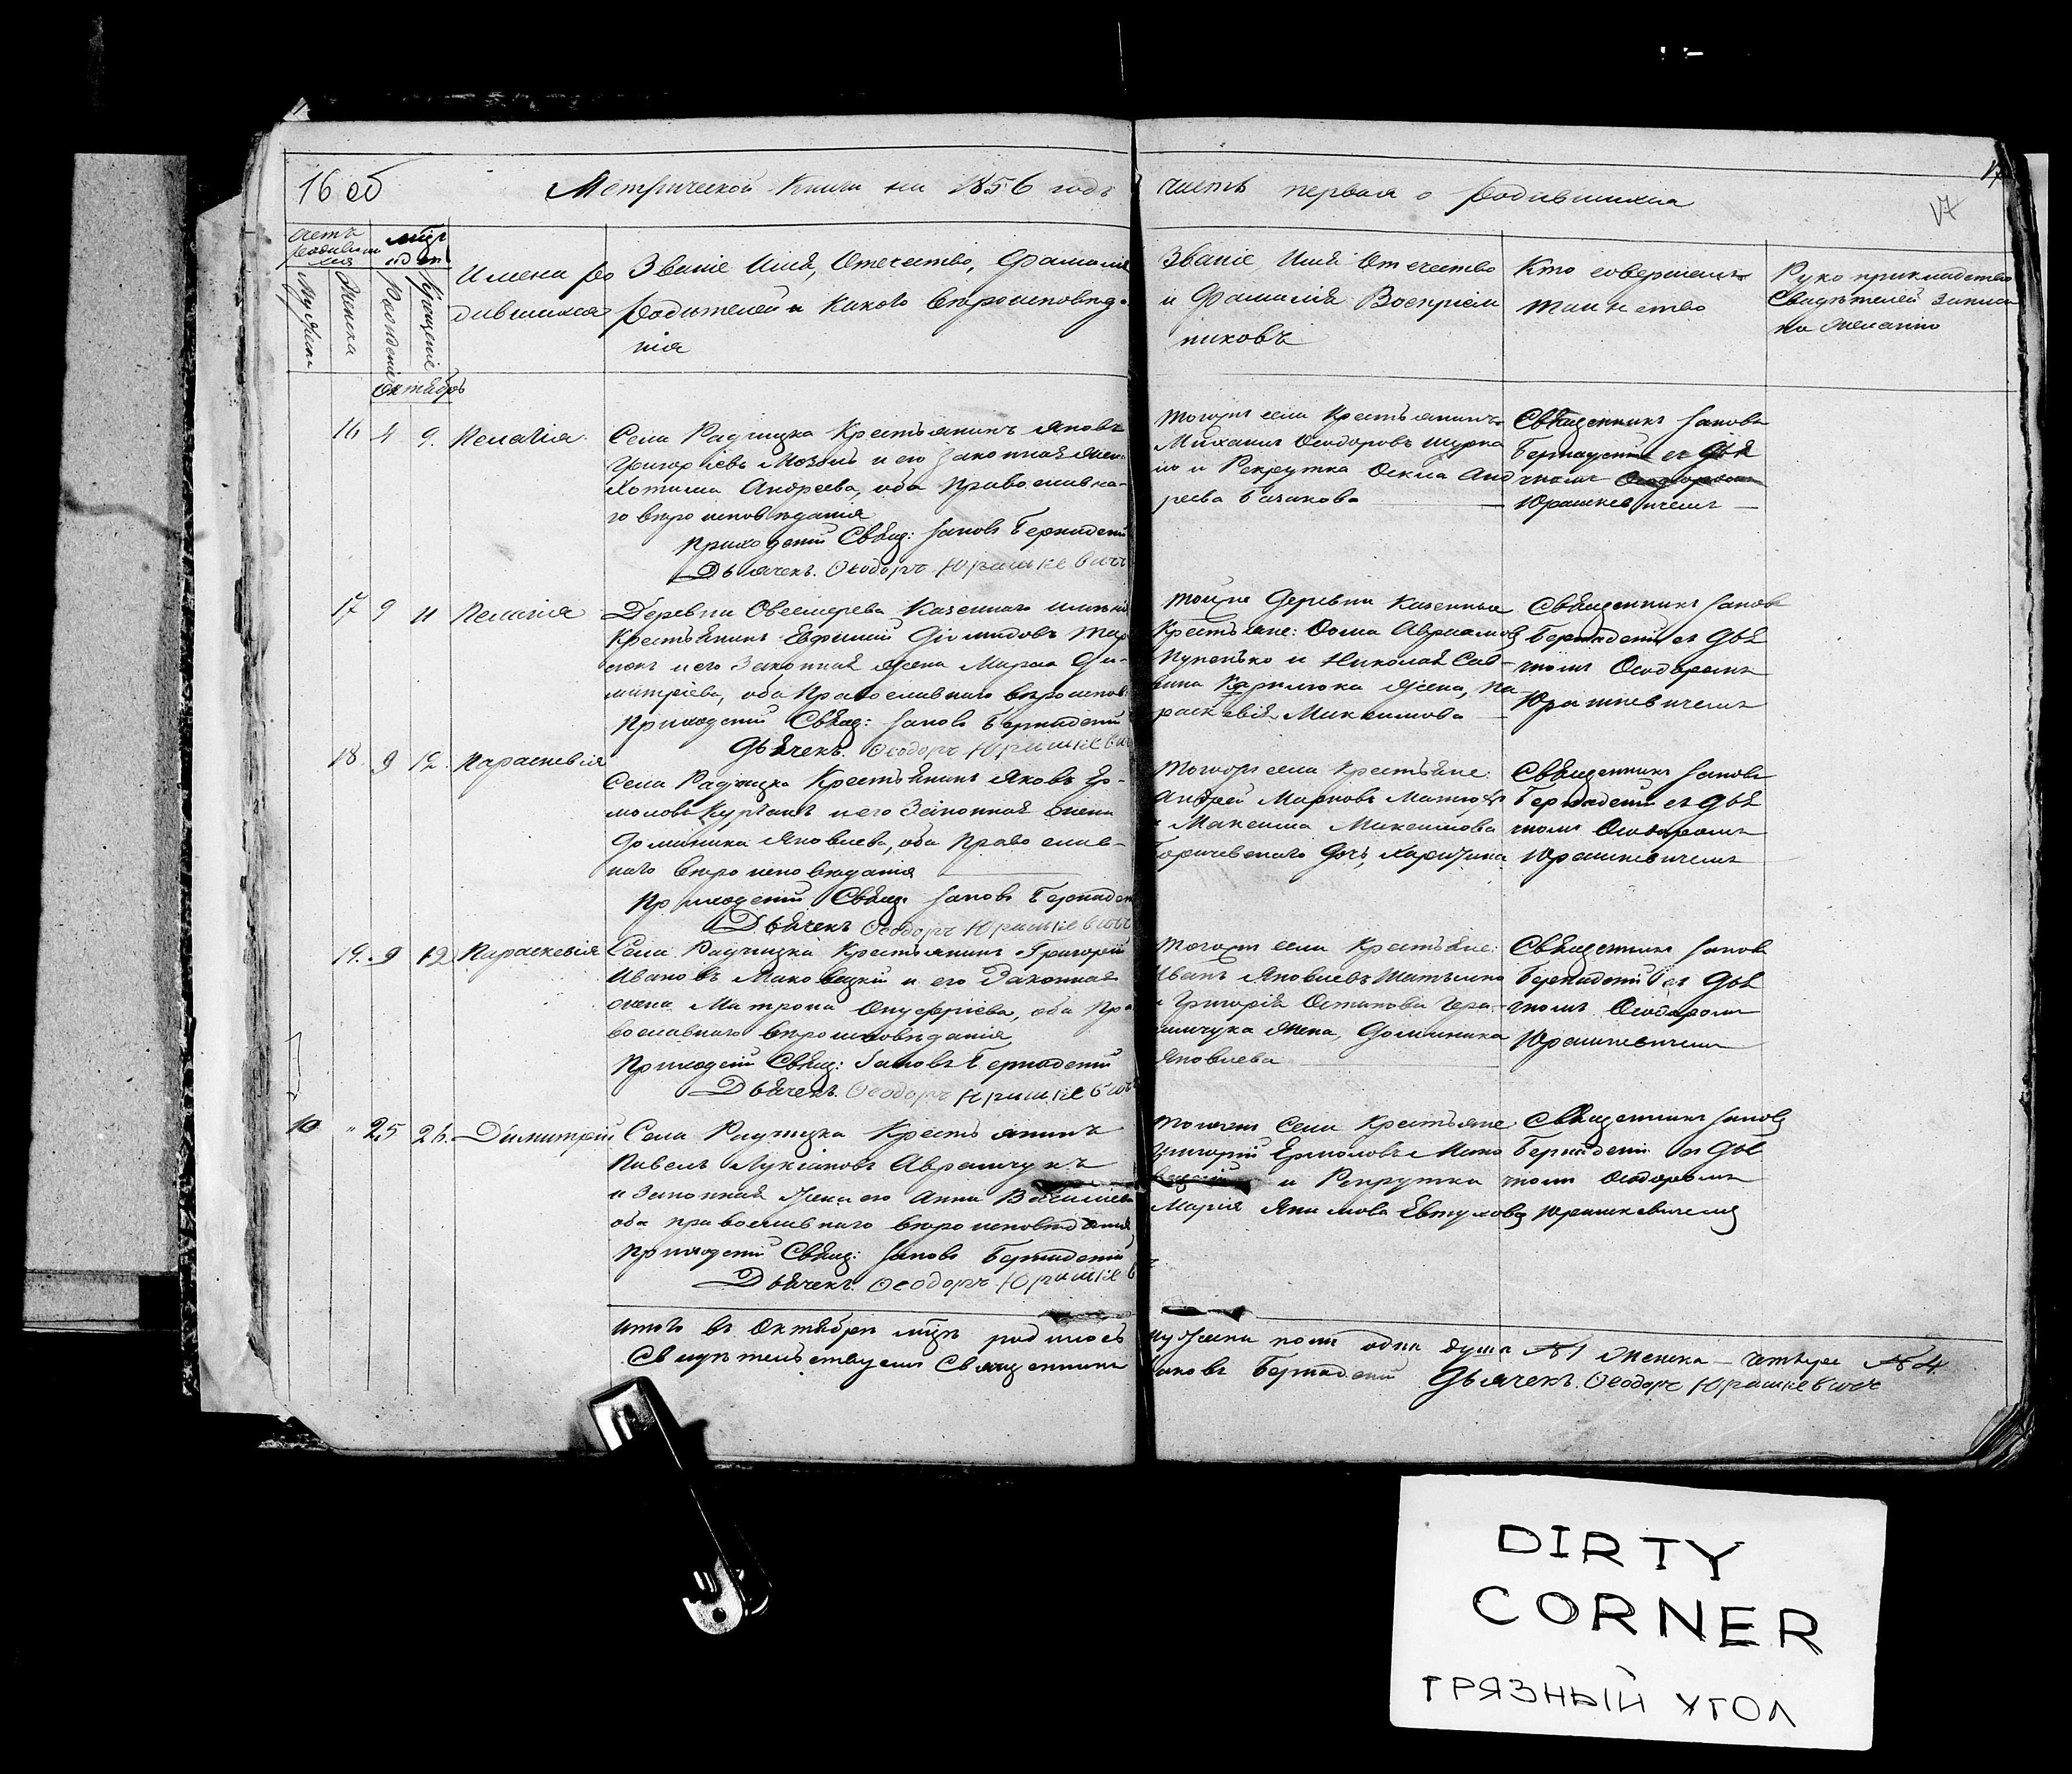 16 об
Метрической Книги на 1856 годъ часть первая о родившихся
17
Счетъ родившихся
Мужеска
Женска
Мцъ и день
Рожденіе
Крещеніе
Имена родившихся
Званіе Имя, Отечество, Фамилія
родителей и какого Вѣроисповѣда-
нія
Званіе Имя Отечество
и Фамилія Воспріем
никовъ
Кто совершалъ
таинство
Руко прикладство
Свидѣтелей записи
по желанію
Октябрь
16 4 9. Пелагія.
Села Радчицка Крестьянинъ Яковъ
Григоріевъ Мозоль и его законная жена
Хотима Андреева, оба Православна-
го вѣроисповѣданія
Приходскій Свящ: Іаковъ
Дьячекъ. Ѳеодоръ Юрашкевичъ
Тогожъ села Крестьянинъ
Михаилъ Ѳеодоровъ
и Рекрутка Ѳекла Анд
реева
Священникъ Іаковъ
съ Дья
чкомъ
Юрашкевичемъ
17 9 11 Пелагія
Деревни Казеннаго имѣнія
Крестьянинъ Евфимій
и его Законная жена Марѳа Ди-
митріева, оба Православнаго вѣроиспов:
Приходскій Свящ: Іаковъ
Дьячекъ. Ѳеодоръ Юрашкевичъ
Тойже Деревни Казенные
Крестьяне: Ѳома Авраамовъ
и Николая Сав-
вина жена, Па-
раскевія Максимова
Священникъ Іаковъ
съ Дья
чкомъ Ѳеодоромъ
Юрашкевичемъ
18 9 12. Параскевія
Села Радчицка Крестьянинъ Яковъ Ер-
моловъ Курганъ и его Законная жена
Доминика Яковлева, оба Православ-
наго вѣроисповѣданія
Приходскій Свящ: Іаковъ
Дьячекъ Ѳеодоръ Юрашкевичъ
Тогожъ села Крестьяне:
Андрей Марковъ
и Максима Максимова
дочь, Харитина
Священникъ Іаковъ
съ Дья
чкомъ Ѳеодоромъ
Юрашкевичемъ
19. 9 12 Параскевія
Села Радчицка Крестьянинъ Григорій
Ивановъ Маковецкій и его Законная
жена Матрона Онуфріева, оба Пра
вославнаго вѣроисповѣданія
Приходскій Свящ: Іаковъ
Дьячекъ. Ѳеодоръ Юрашкевичъ
Тогожъ села Крестьяне:
Иванъ Яковлевъ
и Григорія Остапова Гера-
симчука жена, Доминика
Яковлева
Священникъ Іаковъ
съ Дья
чкомъ Ѳеодоромъ
Юрашкевичемъ
10 " 25 26. Димитрій
Села Радчицка Крестьянинъ
Павелъ Лукіановъ Аврамчукъ
и Законная жена его Анна Васильева
оба православнаго вѣроисповѣданія
Приходскій Свящ: Іаковъ
Дьячекъ. Ѳеодоръ Юрашкевичъ
Тогожъ Села Крестьяне
Григорій Ермоловъ Мако
вецкій и Рекрутка
Марія Якимова Евтухова
Священникъ Іаковъ
съ Дья
чкомъ Ѳеодоромъ
Юрашкевичемъ
Итого въ Октябрѣ мцѣ родилось мужеска пола одна душа № 1 женска - четыре № 4.
Свидѣтельствуемъ Священникъ Іаковъ Дьячекъ. Ѳеодоръ Юрашкевичъ
DIRTY
CORNER
ГРЯЗНЫЙ УГОЛ